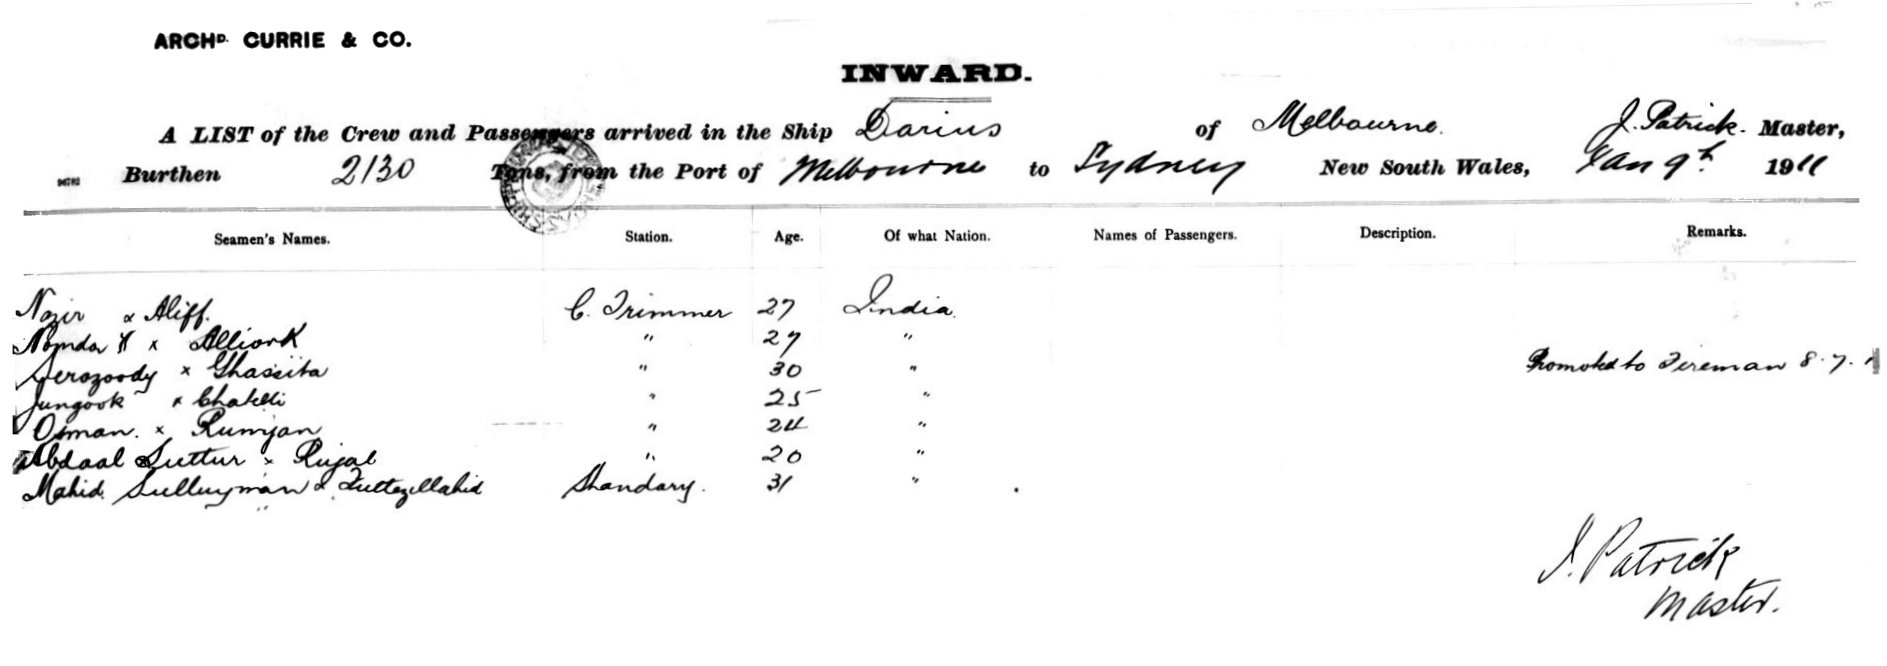 ARCHD. CURRIE & CO.
INWARD.
A LIST of the Crew and Passengers arrived in the Ship Darius of Melbourne. J. Patrick. Master,
96782 Burthen 2130 Tons, from the Port of Melbourne to Sydney New South Wales, Jan 9th 1911
Seamen's Names. Station. Age. Of what Nation. Names of Passengers. Description. Remarks.
Nozir x Aliff. C. Trimmer 27 India.
x Alliook " 27 "
Serozoody x Ghassita " 30 " Promoted to Fireman 8.7.
Jungook x " 25 "
Osman. x Rumjan " 24 "
Abdaal Suttur x Rujal " 20 "
Mahid. Sulluyman x 31 "
J. Patrick
Master.